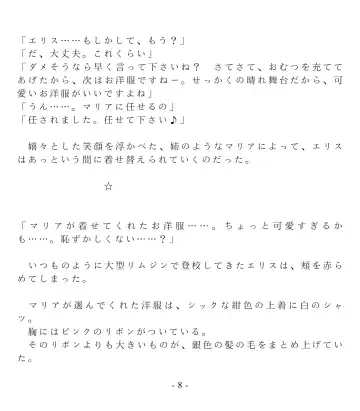 「エリス……もしかして、もう？」
「だ、大丈夫。これくらい」
「ダメそうなら早く言って下さいね？　さてさて、おむつを充てて
あげたから、次はお洋服ですねー。せっかくの晴れ舞台だから、可
愛いお洋服がいいですよね」
「うん……。マリアに任せるの」
「任されました。任せて下さい♪」
　嬉々とした笑顔を浮かべた、姉のようなマリアによって、エリス
はあっという間に着せ替えられていくのだった。
☆
「マリアが着せてくれたお洋服……。ちょっと可愛すぎるか
も……。恥ずかしくない……？」
　いつものように大型リムジンで登校してきたエリスは、頬を赤ら
めてしまった。
　マリアが選んでくれた洋服は、シックな紺色の上着に白のシャ
ツ。
　胸にはピンクのリボンがついている。
　そのリボンよりも大きいものが、銀色の髪の毛をまとめ上げてい
た。
- 8 -